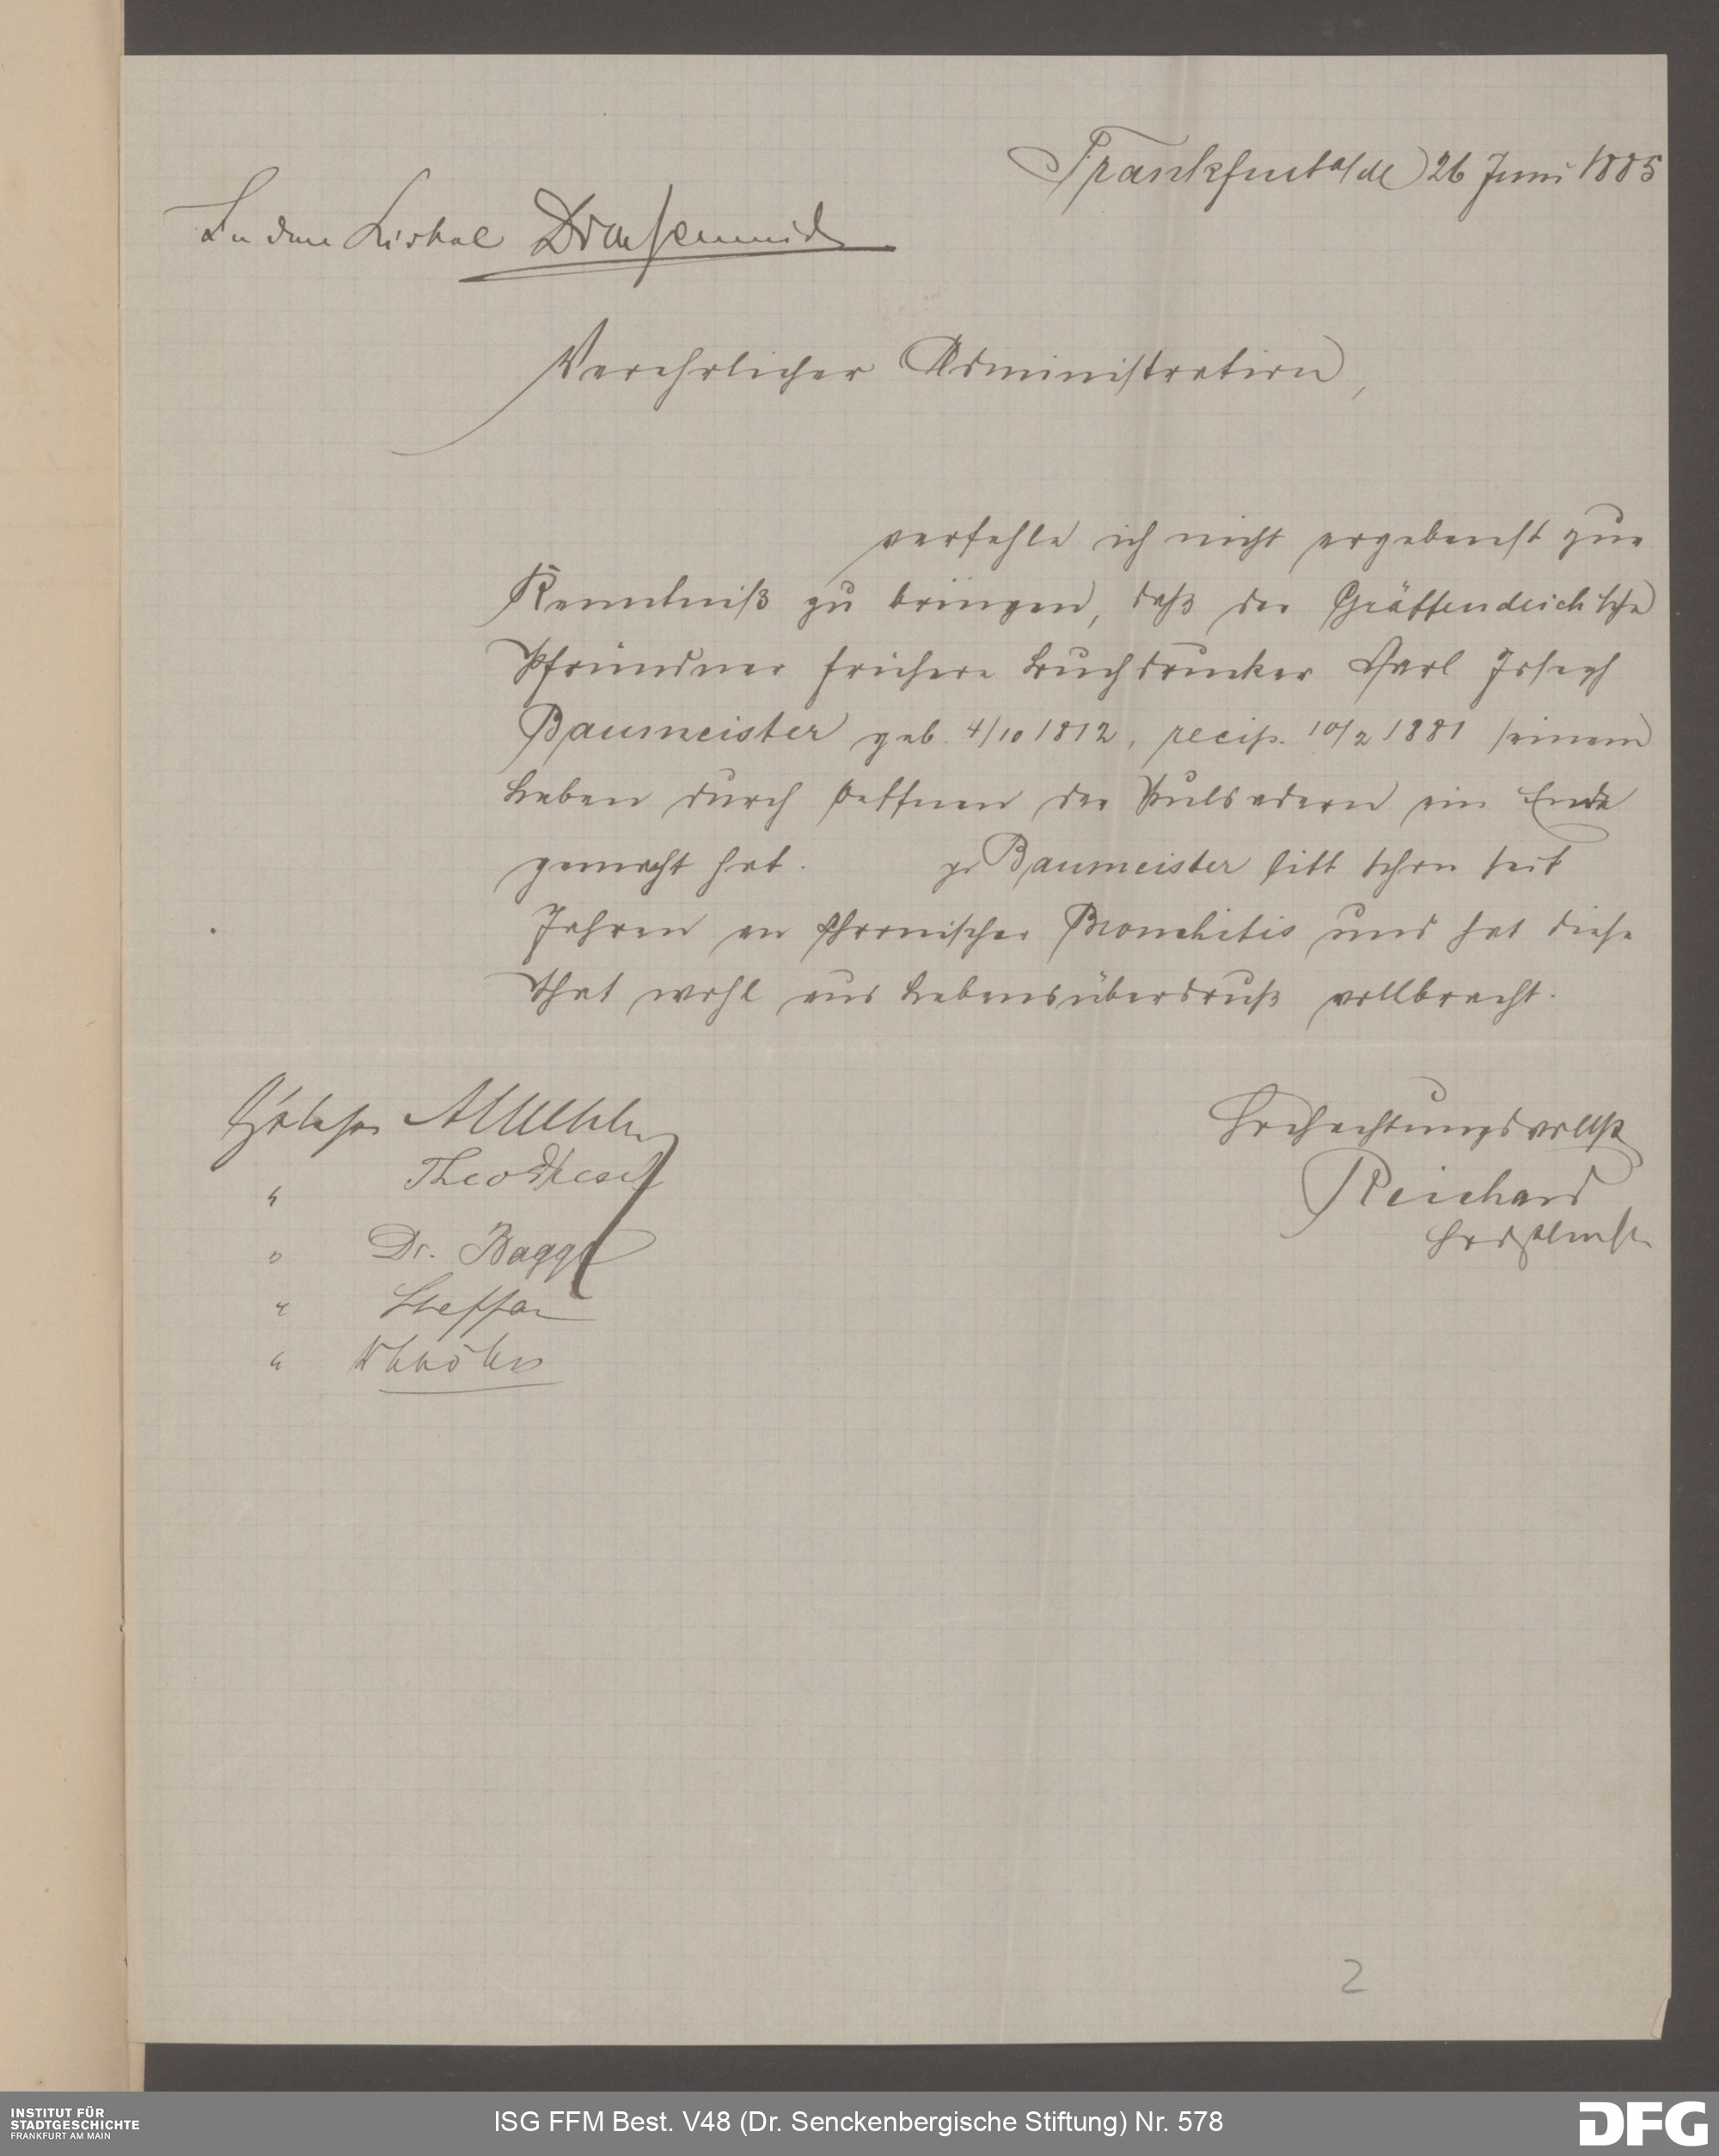 Frankfurt a/M 26 Juni 1885
Zu den
Verehrlicher Administration,
verfehle ich nicht ergebenst zur
Kenntniß zu bringen, daß der Gräffendeich'sche
Pfründner frühere Buchdrucker Carl Joseph
Baumeister geb. 4/10 1812, recip. 10/2 1881 seinem
Leben durch Oeffnen der Pulsadern ein Ende
gemacht hat. p. Baumeister litt schon seit
Jahren an chronischer Bronchitis und hat diese
That wohl aus Lebensüberdruß vollbracht.
Hochachtungsvollst
Reichard
Gelesen
" Theo
" Dr. Bagge
"
"
2
INSTITUT FÜR
STADTGESCHICHTE
FRANKFURT AM MAIN
ISG FFM Best. V48 (Dr. Senckenbergische Stiftung) Nr. 578
DFG